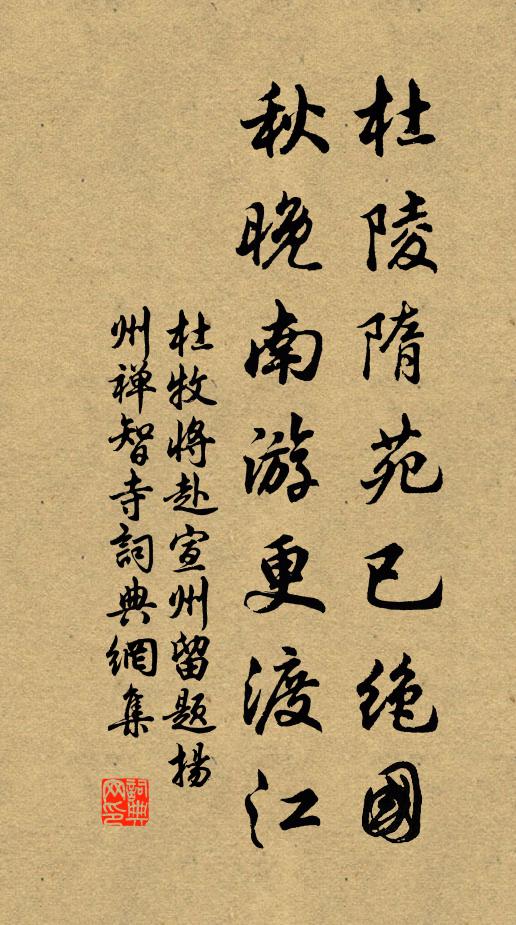 杜陵隋苑已绝國
秋晚南游更渡江
杜牧将赴宣州留题揚
州禅智寺詞典網集
詞典网印